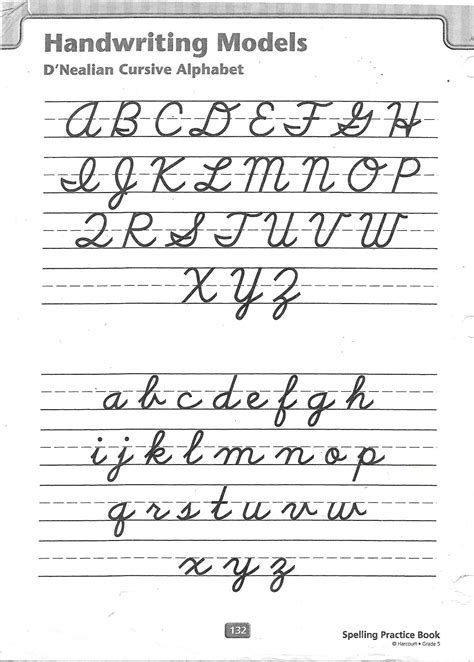 Handwriting Models
D'Nealian Cursive Alphabet
A B C D E F G H
I J K L M N O P
Q R S T U V W
X Y Z
a b c d e f g h
i j k l m n o p
q r s t u v w
x y z
132
Spelling Practice Book
© Harcourt • Grade 5